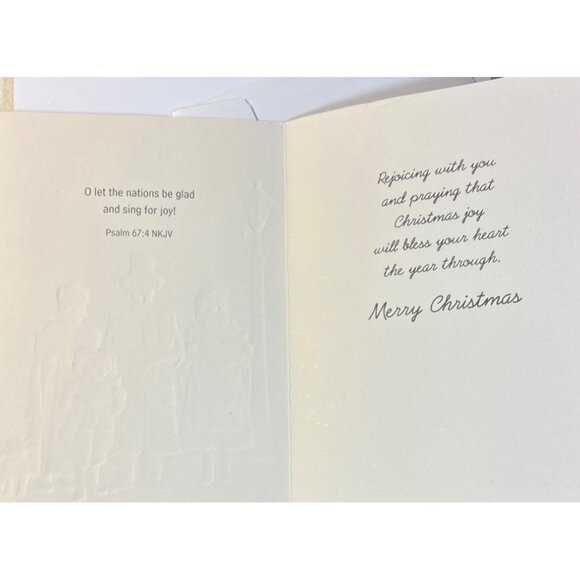 O let the nations be glad
and sing for joy!
Psalm 67:4 NKJV
Rejoicing with you
and praying that
Christmas joy
will bless your heart
the year through.
Merry Christmas